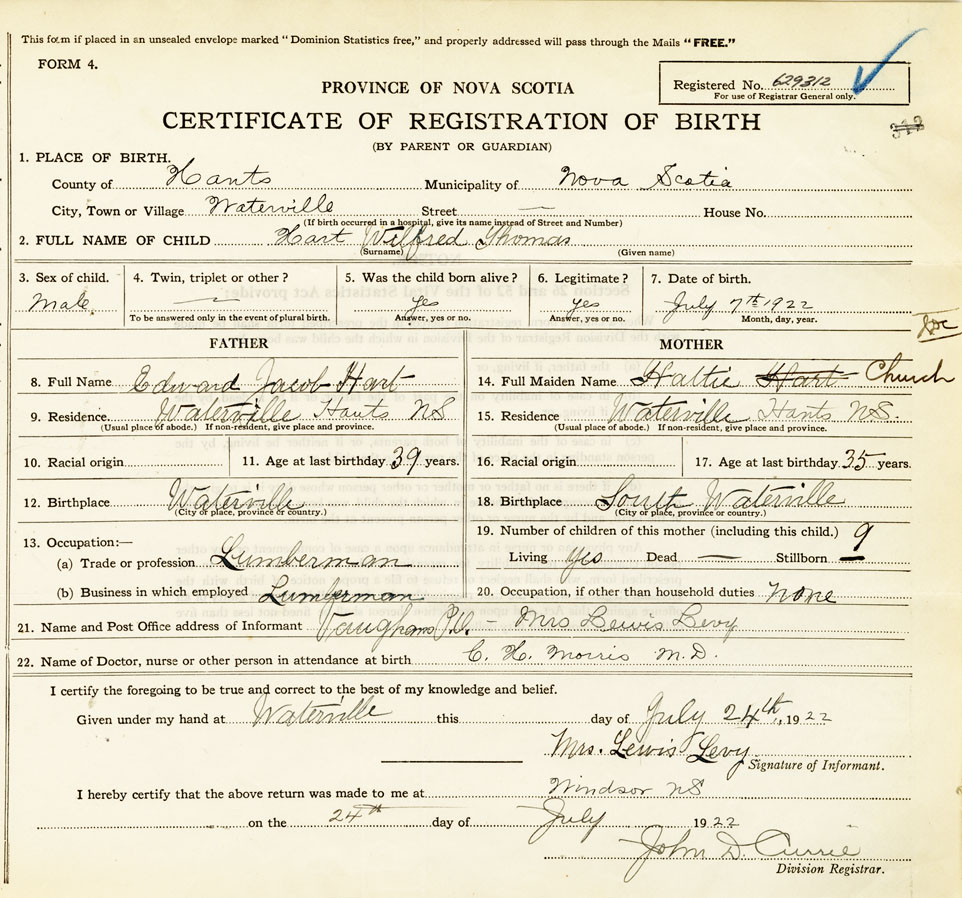 This form if placed in an unsealed envelope marked "Dominion Statistics free," and properly addressed will pass through the Mails "FREE."
FORM 4.
Registered No. 629312
For use of Registrar General only.
PROVINCE OF NOVA SCOTIA
CERTIFICATE OF REGISTRATION OF BIRTH
(BY PARENT OR GUARDIAN)
1. PLACE OF BIRTH.
County of Hants Municipality of Nova Scotia
City, Town or Village Waterville Street — House No.
(If birth occurred in a hospital, give its name instead of Street and Number)
2. FULL NAME OF CHILD Hart Wilfred Thomas
(Surname) (Given name)
3. Sex of child. 4. Twin, triplet or other? 5. Was the child born alive? 6. Legitimate? 7. Date of birth.
Male — yes yes July 7th 1922
To be answered only in the event of plural birth. Answer, yes or no. Answer, yes or no. Month, day, year.
FATHER MOTHER
8. Full Name Edward Jacob Hart 14. Full Maiden Name Hattie Hart Church
9. Residence Waterville Hants NS 15. Residence Waterville Hants NS
(Usual place of abode.) If non-resident, give place and province. (Usual place of abode.) If non-resident, give place and province.
10. Racial origin 11. Age at last birthday 39 years. 16. Racial origin 17. Age at last birthday 35 years.
12. Birthplace Waterville 18. Birthplace South Waterville
(City or place, province or country.) (City or place, province or country.)
13. Occupation:— 19. Number of children of this mother (including this child.) 9
(a) Trade or profession Lumberman Living yes Dead — Stillborn —
(b) Business in which employed Lumberman 20. Occupation, if other than household duties None
21. Name and Post Office address of Informant Vaughans P.O. – Mrs Lewis Levy
22. Name of Doctor, nurse or other person in attendance at birth C. H. Morris M.D.
I certify the foregoing to be true and correct to the best of my knowledge and belief.
Given under my hand at Waterville this day of July 24th, 1922
Mrs. Lewis Levy
Signature of Informant.
I hereby certify that the above return was made to me at Windsor NS
on the 24th day of July 1922
John D. Currie
Division Registrar.